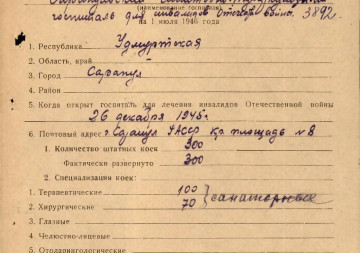 госпиталь для инвалидов Отечеств. войны. 3892.
(наименование госпиталя)
на 1 июля 1946 года
1. Республика Удмуртская
2. Область, край
3. Город Сарапул
4. Район
5. Когда открыт госпиталь для лечения инвалидов Отечественной войны
26 декабря 1945 г.
6. Почтовый адрес г. Сарапул УАССР Кр. площадь № 8
1. Количество штатных коек 300
Фактически развернуто 300
2. Специализация коек:
1. Терапевтические 100
2. Хирургические 70 } санаторные
3. Глазные
4. Челюстно-лицевые
5. Отоларингологические